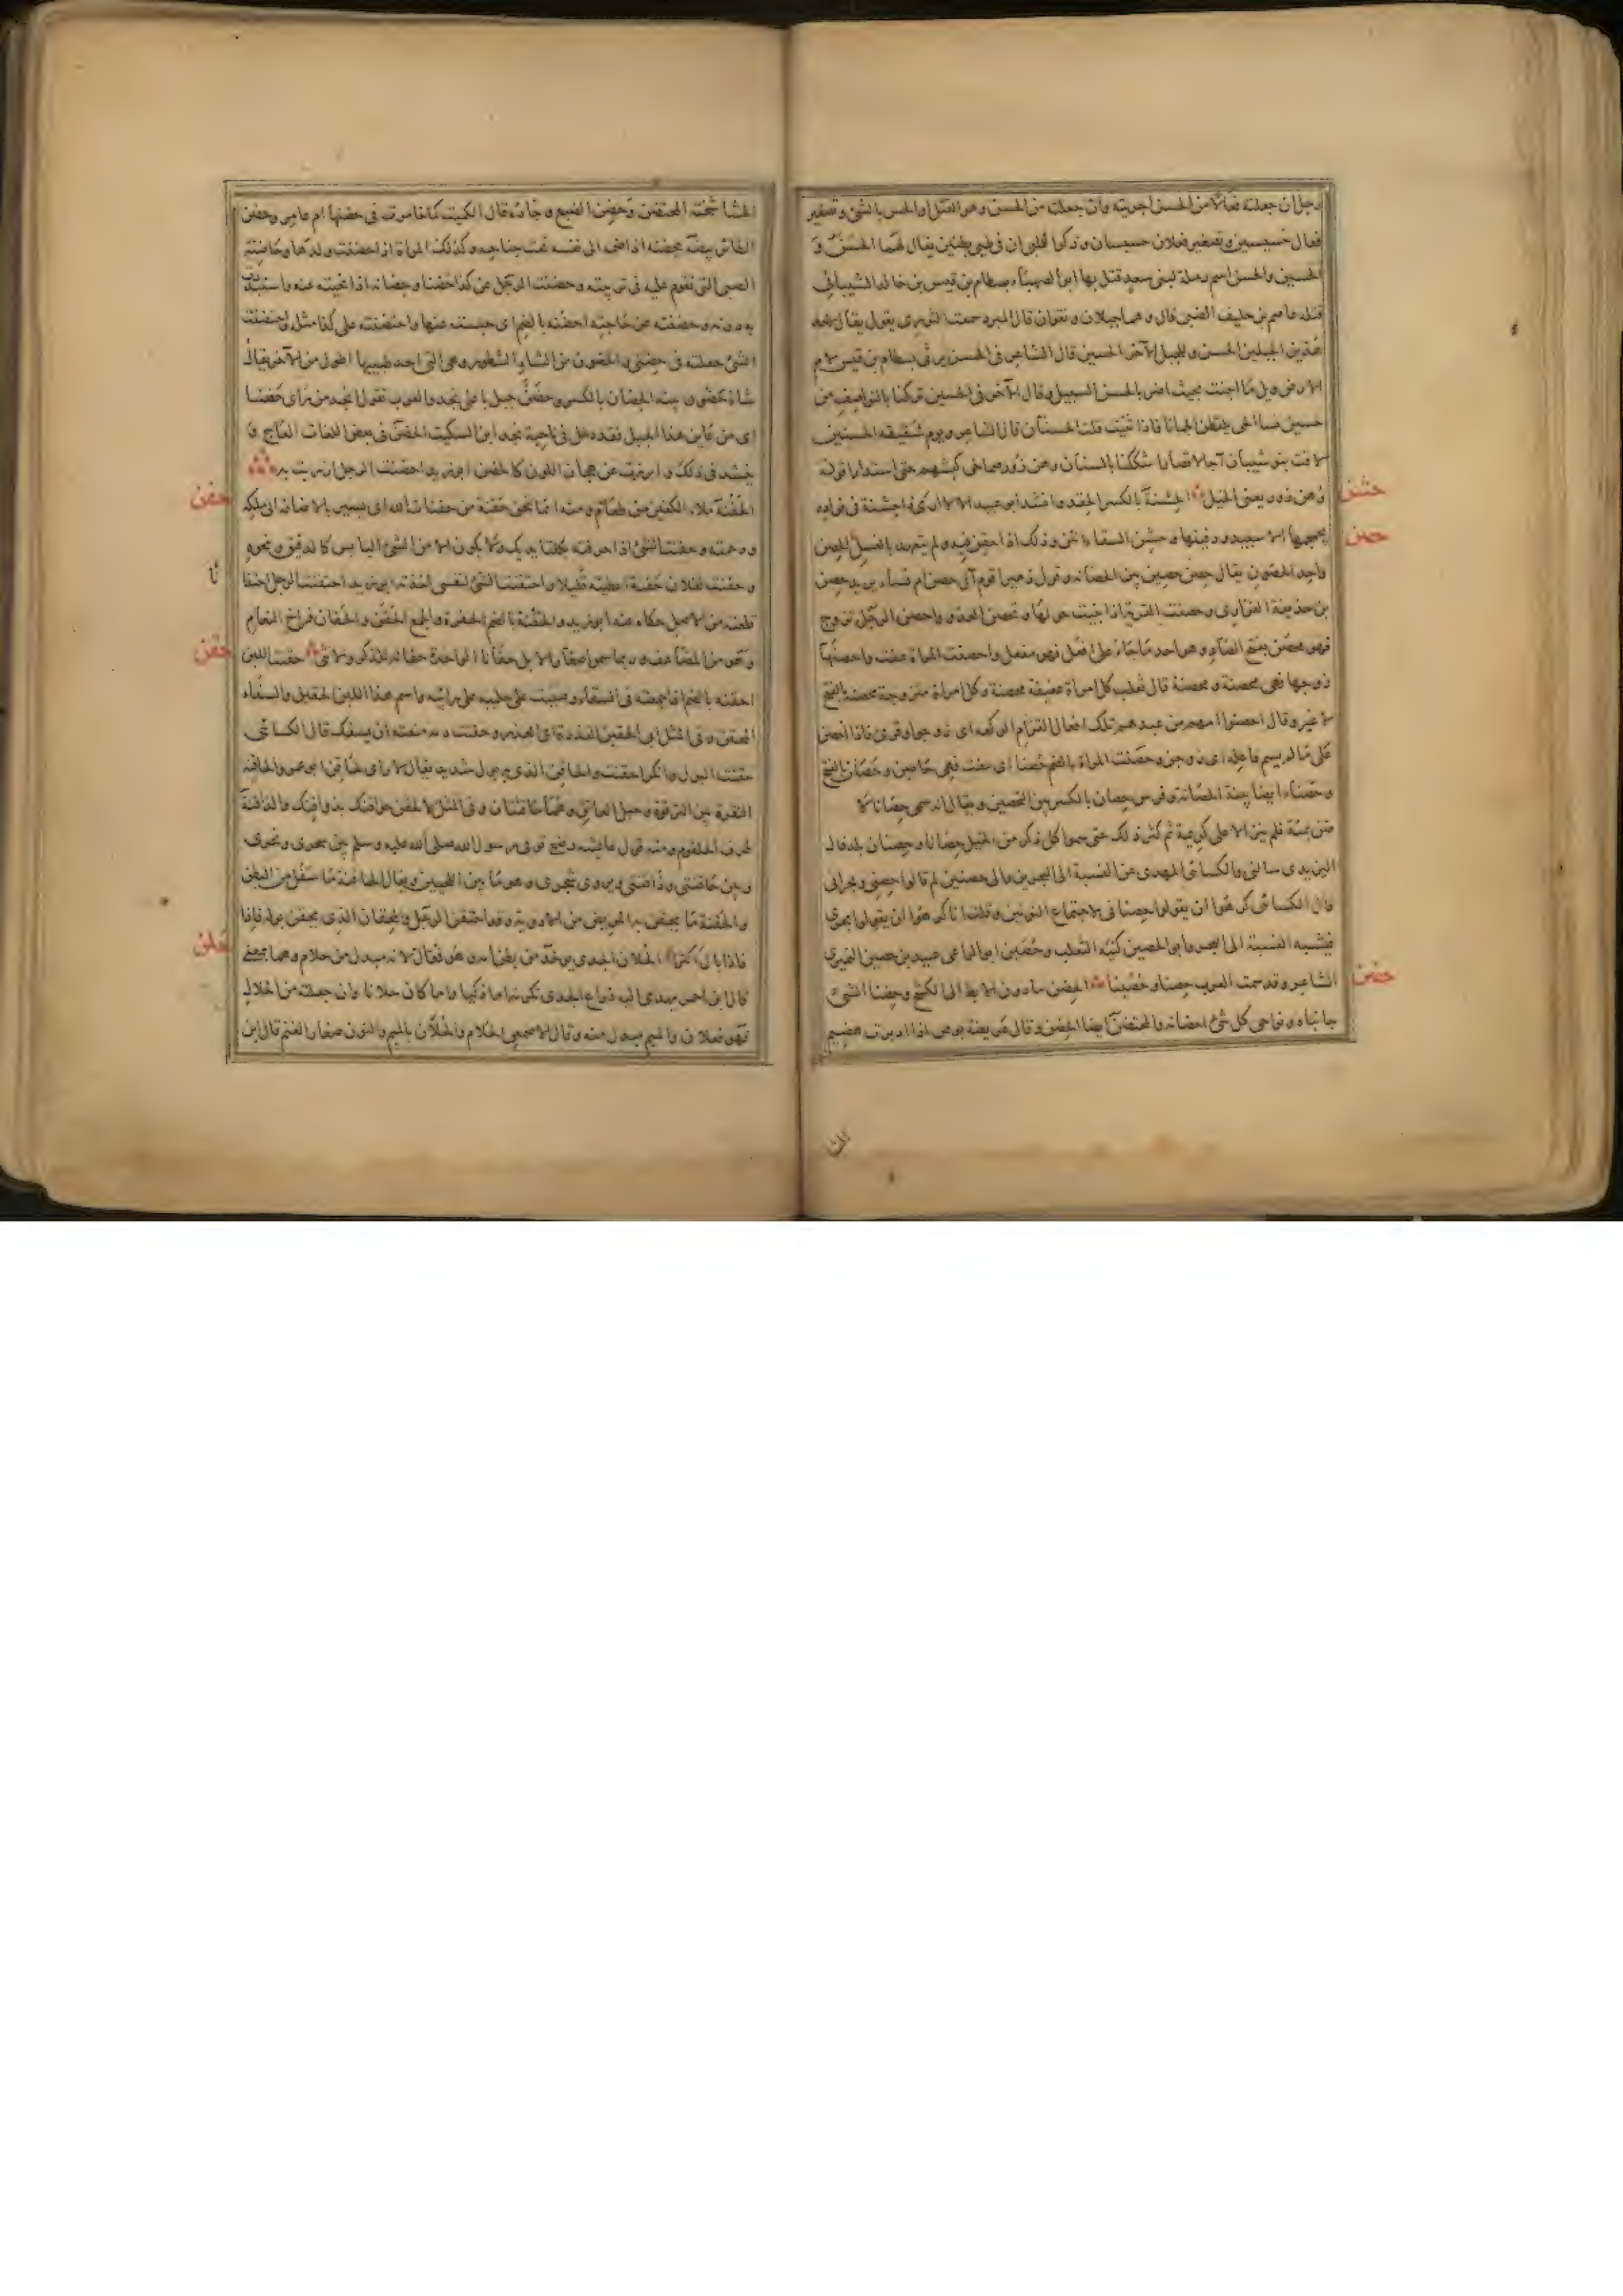 رجل ان جعلته فعالا من الحسن اجريته وان جعلته من الحس وهو القتل او الحس بالشئ وتصغير
فعال حسيسين وتصغير فعلان حسيسان وذكر الكلبى ان فى طيئ بطنين يقال لهما الحسن و
الحسين والحسن اسم رملة لبنى سعد قتل بها ابو الصهباء بسطام بن قيس بن خالد الشيبانى
قتله عاصم بن خليفة الضبى قال وهما جبلان ونقوان قال المبرد سمعت التوزى يقول يقال لاحد
هذين الجبلين الحسن وللجبل الآخر الحسين قال الشاعر فى الحسن يرثى بسطام بن قيس لام
الارض ويل ما اجنت بحيث اضر بالحسن السبيل وقال الآخر فى الحسين تركنا بالنواصف من
حسين نساء الحى يلقطن الجمانا فاذا ثنيت قلت الحسنان قال الشاعر ويوم شقيقة الحسنين
لاقت بنو شيبان آجالا قصارا شككنا بالسنان وهن زور صماخى كبشهم حتى استدارا قوله
وهن زور يعنى الخيل الحشنة بالكسر الحقد وانشد ابو عبيد الا لا ارى ذا حشنة فى فؤاده
حشن
يجمجمها الا سيبدو دفينها وحشن السقاء انتن وذلك اذا حقن فيه ولم يتعهد بالغسل الحصن
حصن
واحد الحصون يقال حصن حصين بين الحصانة وقول زهير اقوم آل حصن ام نساء يريد حصن
بن حذيفة الفزارى وحصنت القرية اذا بنيت حولها وتحصن العدو واحصن الرجل تزوج
فهو محصن بفتح الصاد وهو احد ما جاء على افعل فهو مفعل واحصنت المراة عفت واحصنها
زوجها فهى محصنة ومحصنة قال ثعلب كل امراة عفيفة محصنة وكل امراة متزوجة محصنة بالفتح
لا غير وقال احصنوا امهم من عبدهم تلك افعال القزام الوكعه اى زوجوا وقرئ فاذا احصن
على ما لم يسم فاعله اى زوجن وحصنت المراة بالضم حصنا اى عفت فهى حاصن وحصان بالفتح
وحصناء ايضا بينة الحصانة وفرس حصان بالكسر بين التحصين ويقال انه سمى حصانا لا
ضن بمائه فلم ينز الا على كريمة ثم كثر ذلك حتى سموا كل ذكر من الخيل حصانا وحصنان بلد قال
اليزيدى سالنى والكسائى المهدى عن النسبة الى البحرين والى حصنين لم قالوا حصنى وبحرانى
قال الكسائى كرهوا ان يقولوا حصنانى لاجتماع النونين وقلت انا كرهوا ان يقولوا بحرى
فيشبه النسبة الى البحر وابو الحصين كنية الثعلب وحصين ابو الراعى عبيد بن حصين النميرى
الشاعر وقد سمت العرب حصنا وحصينا الحضن ما دون الابط الى الكشح وحضنا الشئ
حضن
جانباه ونواحى كل شئ احضانه والمحتضن ايضا الحضن وقال عريضة بوص اذا ادبرت هضيم
الحشا
الحشا شختة المحتضن وحضن الضبع وجاره قال الكميت كما خامرت فى حضنها ام عامر وحضن
الطائر بيضه يحضنه اذا ضمه الى نفسه تحت جناحيه وكذلك المراة اذا حضنت ولدها وحاضنة
الصبى التى تقوم عليه فى تربيته وحضنت الرجل عن كذا حضنا وحضانة اذا نحيته عنه واستبددت
به دونه وحضنته عن حاجته احضنه بالضم اى حبسته عنها واحتضنته على كذا مثله واحتضنت
الشئ جعلته فى حضنى والحضون من الشاء الشطور وهى التى احد طبييها اطول من الآخر يقال
شاة حضون بينة الحضان بالكسر وحضن جبل باعلى نجد والعرب تقول انجد من راى حضنا
اى من عاين هذا الجبل فقد دخل فى ناحية نجد ابن السكيت الحضن فى بعض اللغات العاج و
ينشد فى ذلك وابرزت عن هجان اللون كالحضن ابو زيد احضنت الرجل ازريت به
الحفنة ملء الكفين من طعام ومنه انما نحن حفنة من حفنات الله اى يسير بالاضافة الى ملكه
حفن
ورحمته وحفنت الشئ اذا جرفته بكلتا يديك ولا يكون الا من الشئ اليابس كالدقيق ونحوه
وحفنت لفلان حفنة اعطيته قليلا واحتفنت الشئ لنفسى اخذته ابو زيد احتفنت الرجل احتفا
نا
قلعته من الاصل حكاه عنه ابو عبيد والحفنة بالضم الحفرة والجمع الحفن والحفان فراخ النعام
وهو من المضاعف وربما سموا صغار الابل حفانا الواحدة حفانة للذكر والانثى حقنت اللبن
حقن
احقنه بالضم اذا جمعته فى السقاء وصببت حليبه على رائبه واسم هذا اللبن الحقين والسقاء
المحقن وفى المثل ابى الحقين العذرة اى العذر وحقنت دمه منعته ان يسفك قال الكسائى
حقنت البول وانكر احقنت والحاقن الذى به بول شديد يقال لا راى لحاقن ابو عمرو الحاقنة
النقرة بين الترقوة وحبل العاتق وهما حاقنتان وفى المثل لالحقن حواقنك بذواقنك والذاقنة
طرف الحلقوم ومنه قول عائشة رضع توفى رسول الله صلى الله عليه وسلم بين سحرى ونحرى
وبين حاقنتى وذاقنتى ويروى شجرى وهو ما بين اللحيين ويقال الحاقنة ما سفل من البطن
والحقنة ما يحقن به المريض من الادوية وقد احتقن الرجل والمحقان الذى يحقن بوله فاذا
فاذا بال اكثر الحلان الجدى يوخذ من بطن امه وهو فعال لانه مبدل من حلام وهما بمعنى
حلن
قال ابن احمر يهدى اليه ذراع الجدى تكرمة اما ذكيا واما كان حلانا وان جعلته من الحلال
فهو فعلان والميم مبدل منه وقال الاصمعى الحلام والحلان بالميم والنون صغار الغنم قال ابن